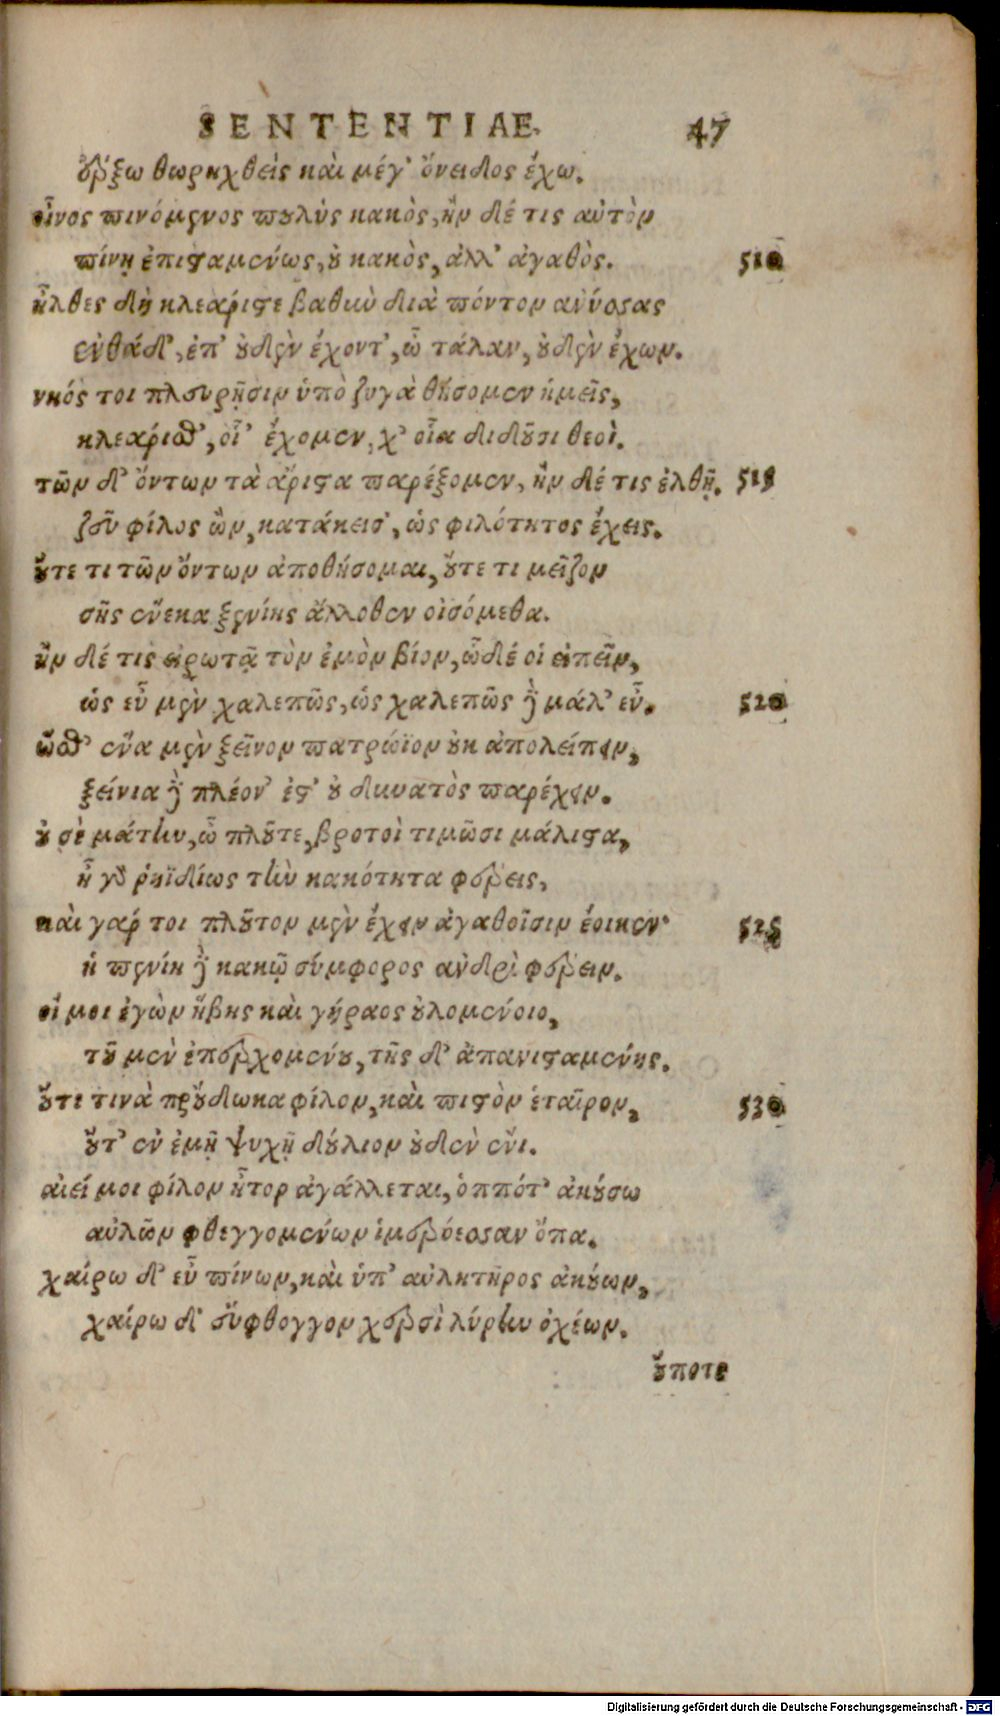 SENTENTIAE. 47
ὕβρξω θωρηχθεὶς καὶ μέγ' ὄνειδος ἔχω.
οἶνος πινόμενος πουλὺς κακὸς, ἢν δέ τις αὐτὸν
πίνῃ ἐπισταμένως, οὐ κακὸς, ἀλλ' ἀγαθὸς. 510
ἦλθες δὴ κλεάριστε βαθὺν διὰ πόντον ἀνύσας
ἐνθάδ', ἐπ' οὐδὲν ἔχοντ', ὦ τάλαν, οὐδὲν ἔχων.
νηός τοι πλευρῇσιν ὑπὸ ζυγὰ θήσομεν ἡμεῖς,
κλεάρισθ', οἷ' ἔχομεν, χ' οἷα διδοῦσι θεοὶ.
τῶν δ' ὄντων τὰ ἄριστα παρέξομεν, ἢν δέ τις ἐλθῇ. 515
ζεῦ φίλος ὢν, κατάκεισ', ὡς φιλότητος ἔχεις.
οὔτε τι τῶν ὄντων ἀποθήσομαι, οὔτε τι μεῖζον
σῆς ἕνεκα ξενίης ἄλλοθεν οἰσόμεθα.
ἢν δέ τις εἰρωτᾷ τὸν ἐμὸν βίον, ὧδέ οἱ εἰπεῖν,
ὡς εὖ μὲν χαλεπῶς, ὡς χαλεπῶς δὲ μάλ' εὖ. 520
ὥσθ' ἕνα μὲν ξεῖνον πατρώϊον οὐκ ἀπολείπειν,
ξείνια δὲ πλέον' ἐστ' οὐ δυνατὸς παρέχειν.
οὐ σὲ μάτην, ὦ πλοῦτε, βροτοὶ τιμῶσι μάλιστα,
ἦ γὰρ ῥηϊδίως τὴν κακότητα φέρεις,
καὶ γάρ τοι πλοῦτον μὲν ἔχειν ἀγαθοῖσιν ἔοικεν· 525
ἡ πενίη δὲ κακῷ σύμφορος ἀνδρὶ φέρειν.
οἴ μοι ἐγὼν ἥβης καὶ γήραος οὐλομένοιο,
τοῦ μὲν ἐπερχομένου, τῆς δ' ἀπανισταμένης.
οὔτε τινὰ προὔδωκα φίλον, καὶ πιστὸν ἑταῖρον, 530
οὔτ' ἐν ἐμῇ ψυχῇ δούλιον οὐδὲν ἔνι.
αἰεί μοι φίλον ἦτορ ἀγάλλεται, ὁππότ' ἀκούσω
αὐλῶν φθεγγομένων ἱμερόεσσαν ὄπα.
χαίρω δ' εὖ πίνων, καὶ ὑπ' αὐλητῆρος ἀκούων,
χαίρω δ' εὔφθογγον χερσὶ λύρην ὀχέων.
οὔποτε
Digitalisierung gefördert durch die Deutsche Forschungsgemeinschaft - DFG